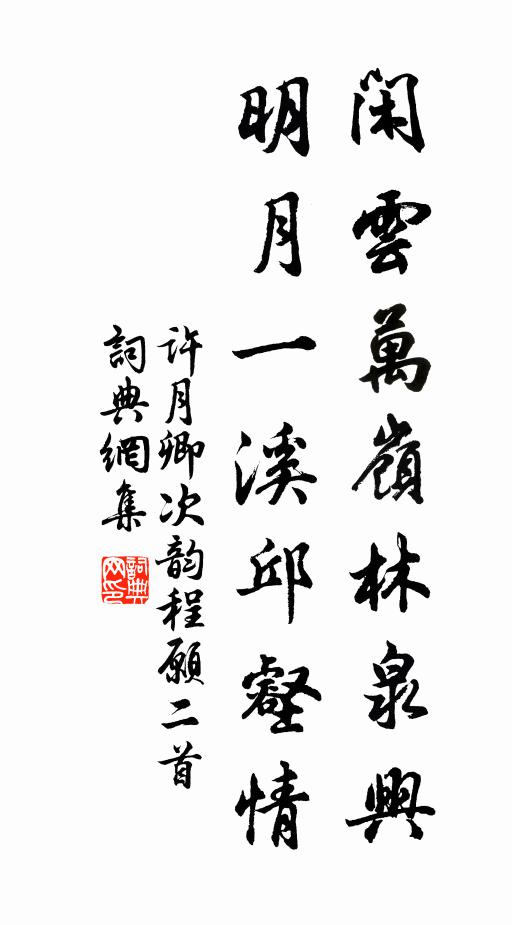 閑雲萬嶺林泉興
明月一溪邱壑情
许月卿次韵程願二首
詞典網集
詞典网印